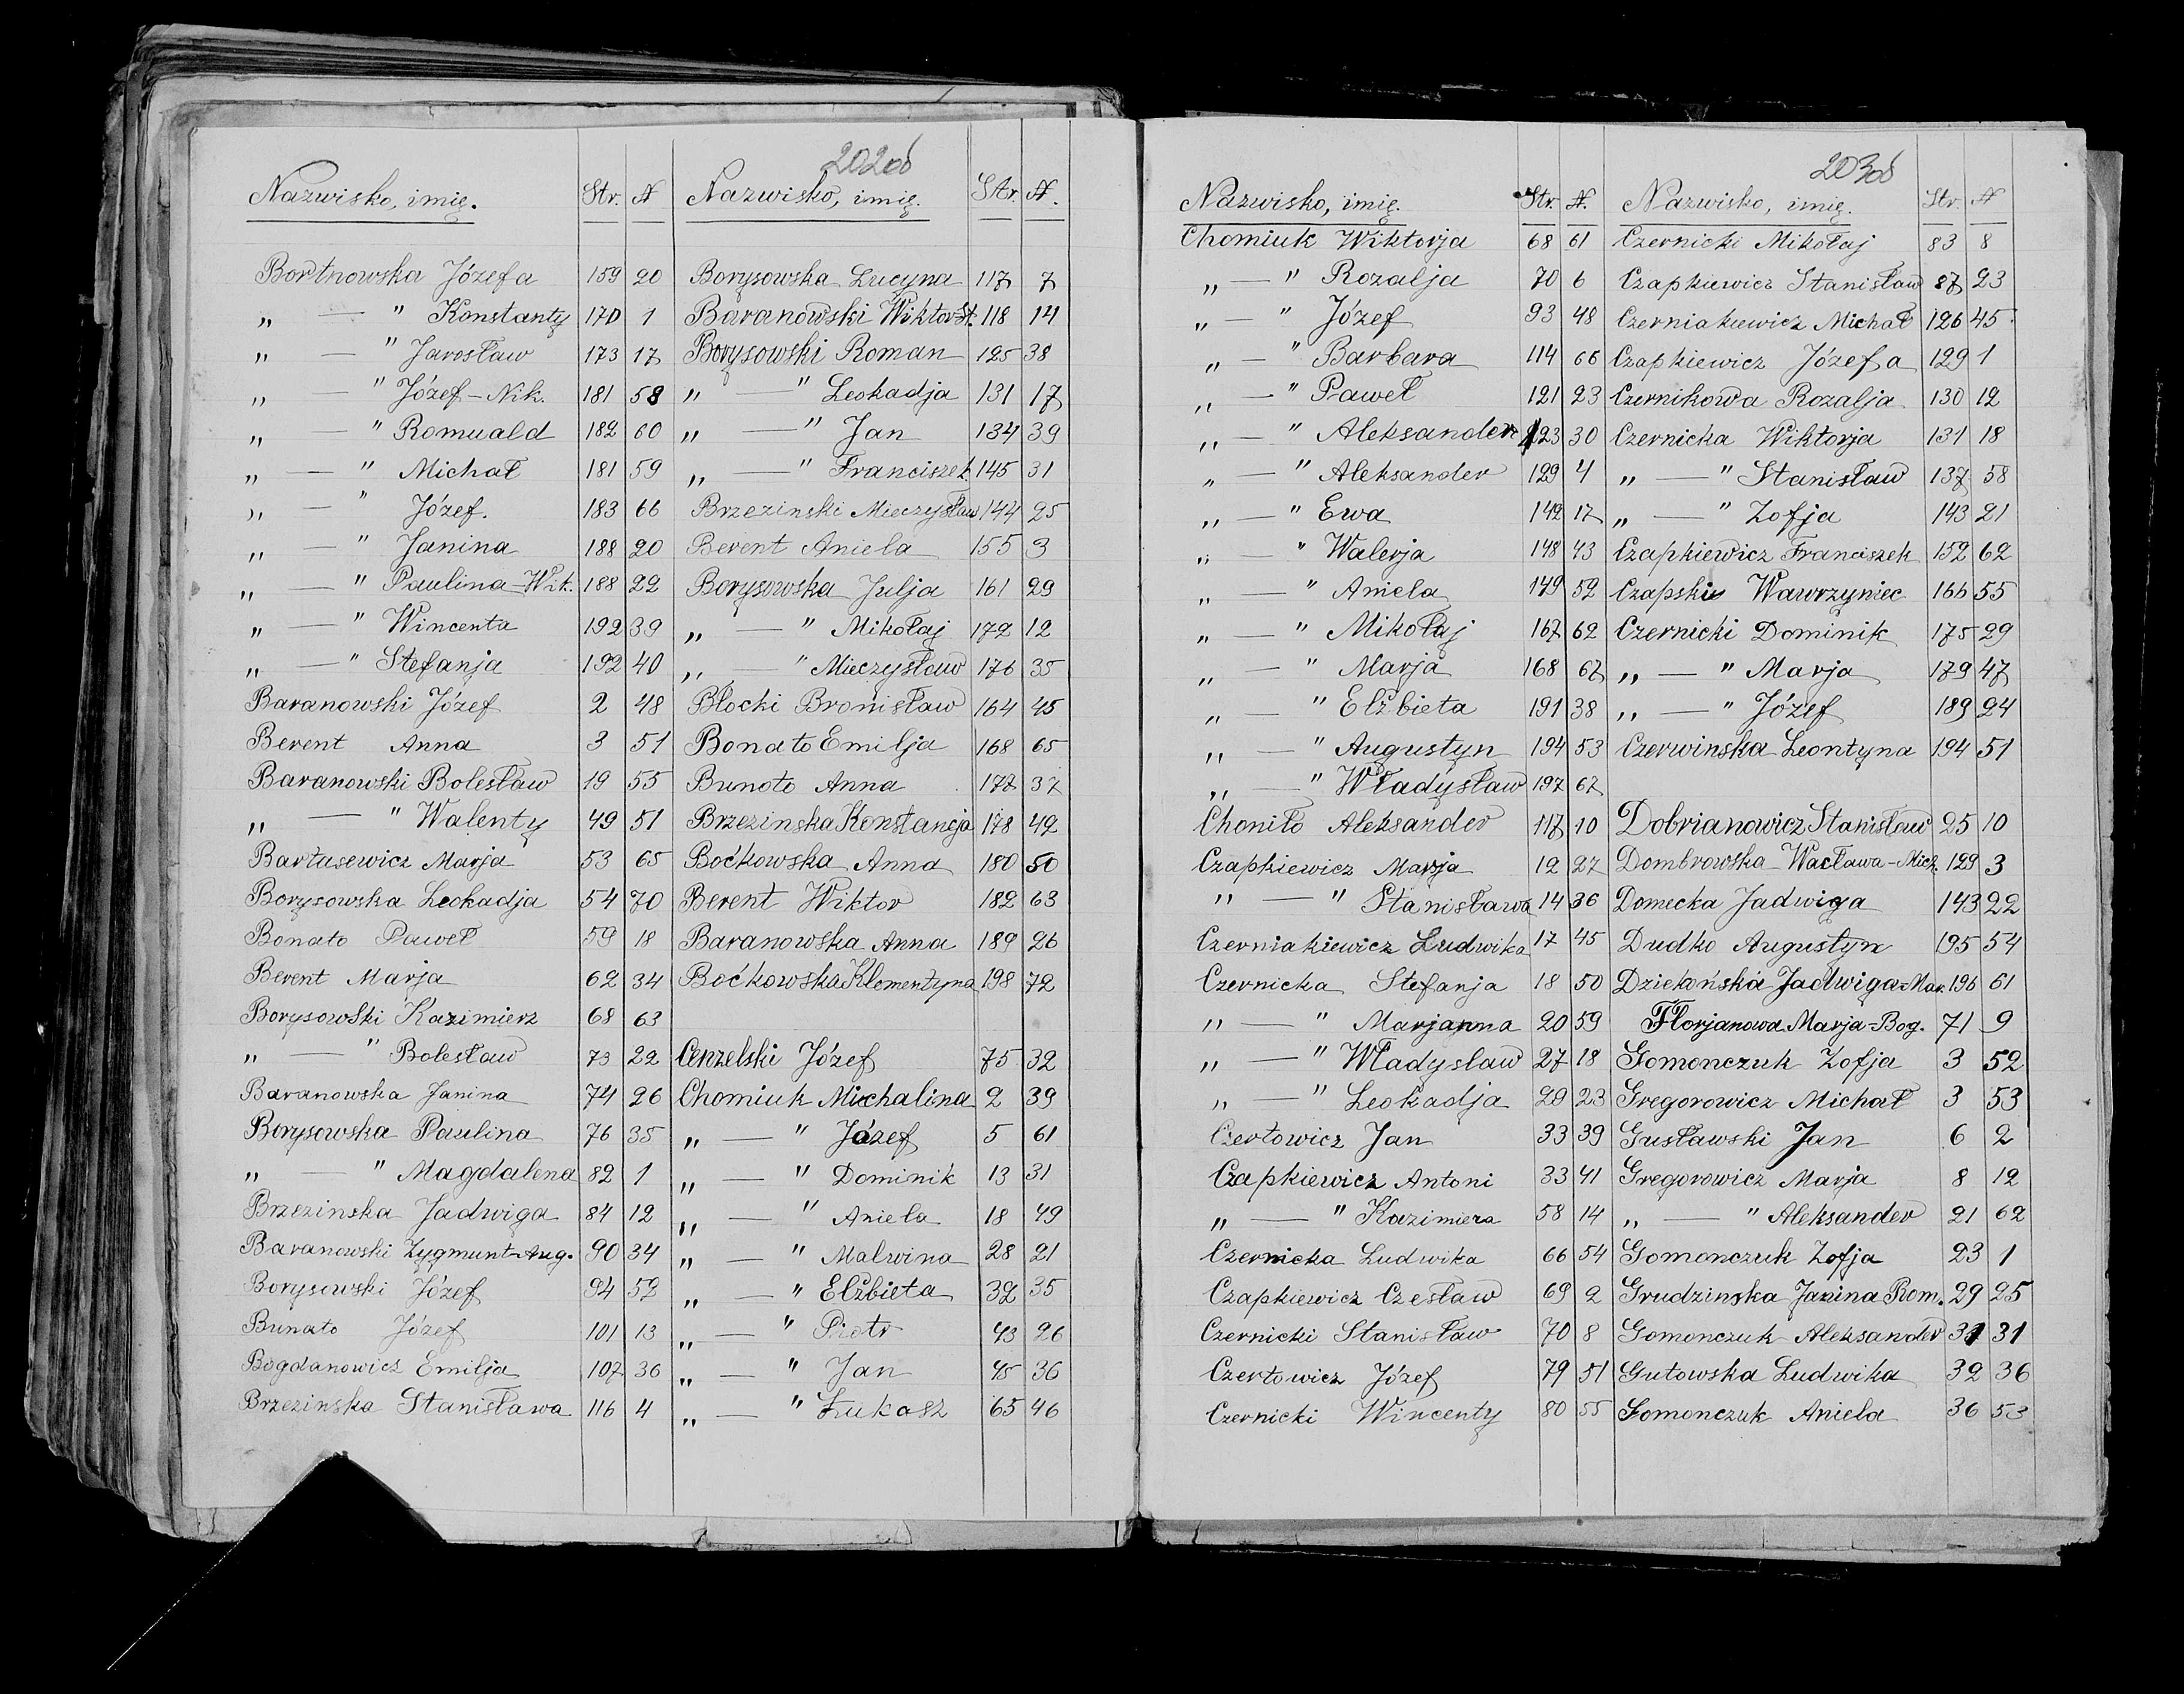 202 об
Nazwisko, imię. Str. №
Bortnowska Józefa 159 20
„ — " Konstanty 170 1
„ — " Jarosław 173 17
„ — " Józef-Nik. 181 58
„ — " Romuald 182 60
„ — " Michał 181 59
„ — " Józef. 183 66
„ — " Janina 188 20
„ — " Paulina-Wik. 188 22
„ — " Wincenta 192 39
„ — " Stefanja 192 40
Baranowski Józef 2 48
Berent Anna 3 51
Baranowski Bolesław 19 55
„ — " Walenty 49 51
Bartusewicz Marja 53 65
Borysowska Leokadja 54 70
Bonato Paweł 59 18
Berent Marja 62 34
Borysowski Kazimierz 68 63
„ — " Bolesław 73 22
Baranowska Janina 74 26
Borysowska Paulina 76 35
„ — " Magdalena 82 1
Brzezinska Jadwiga 84 12
Baranowski Zygmunt-Aug. 90 34
Borysowski Józef 94 52
Bunato Józef 101 13
Bogdanowicz Emilja 107 36
Brzezinska Stanisława 116 4
Nazwisko, imię. Str. №.
Borysowska Lucyna 117 7
Baranowski Wiktor St. 118 14
Borysowski Roman 125 38
„ — " Leokadja 131 17
„ — " Jan 134 39
„ — " Franciszek 145 31
Brzezinski Mieczysław 144 25
Berent Aniela 155 3
Borysowska Julja 161 29
„ — " Mikołaj 172 12
„ — " Mieczysław 176 35
Błocki Bronisław 164 45
Bonato Emilja 168 65
Bunoto Anna 177 37
Brzezinska Konstancja 178 42
Boćkowska Anna 180 50
Berent Wiktor 182 63
Baranowska Anna 189 26
Boćkowska Klementyna 198 72
Cenzelski Józef 75 32
Chomiuk Michalina 2 39
„ — " Józef 5 61
„ — " Dominik 13 31
„ — " Aniela 18 49
„ — " Malwina 28 21
„ — " Elżbieta 32 35
„ — " Piotr 43 26
„ — " Jan 45 36
„ — " Łukasz 65 46
203 об
Nazwisko, imię. Str. №.
Chomiuk Wiktorja 68 61
„ — " Rozalja 70 6
„ — " Józef 93 48
„ — " Barbara 114 66
„ — " Paweł 121 23
„ — " Aleksander 123 30
„ — " Aleksander 129 4
„ — " Ewa 142 17
„ — " Walerja 148 43
„ — " Aniela 149 52
„ — " Mikołaj 167 62
„ — " Marja 168 67
„ — " Elżbieta 191 38
„ — " Augustyn 194 53
„ — " Władysław 197 67
Choniło Aleksander 117 10
Czapkiewicz Marja 12 27
„ — " Stanisława 14 36
Czerniakiewicz Ludwika 17 45
Czernicka Stefanja 18 50
„ — " Marjanna 20 59
„ — " Władysław 27 18
„ — " Leokadja 29 23
Czertowicz Jan 33 39
Czapkiewicz Antoni 33 41
„ — " Kazimiera 58 14
Czernicka Ludwika 66 54
Czapkiewicz Czesław 69 2
Czernicki Stanisław 70 8
Czertowicz Józef 79 51
Czernicki Wincenty 80 55
Nazwisko, imię. Str. №
Czernicki Mikołaj 83 8
Czapkiewicz Stanisław 87 23
Czerniakiewicz Michał 126 45
Czapkiewicz Józefa 129 1
Czernikowa Rozalja 130 12
Czernicka Wiktorja 131 18
„ — " Stanisław 137 58
„ — " Zofja 143 21
Czapkiewicz Franciszek 152 62
Czapski Wawrzyniec 166 55
Czernicki Dominik 175 29
„ — " Marja 179 47
„ — " Józef 189 24
Czerwinska Leontyna 194 51
Dobrianowicz Stanisław 25 10
Dombrowska Wacława-Mich. 129 3
Domecka Jadwiga 143 22
Dudko Augustyn 195 54
Dziekońska Jadwiga-Mar. 196 61
Florjanowa Marja-Bog. 71 9
Gomonczuk Zofja 3 52
Gregorowicz Michał 3 53
Gusławski Jan 6 2
Gregorowicz Marja 8 12
„ — " Aleksander 21 62
Gomonczuk Zofja 23 1
Grudzinska Janina Rom. 29 25
Gomonczuk Aleksander 31 31
Gutowska Ludwika 32 36
Gomonczuk Aniela 36 53